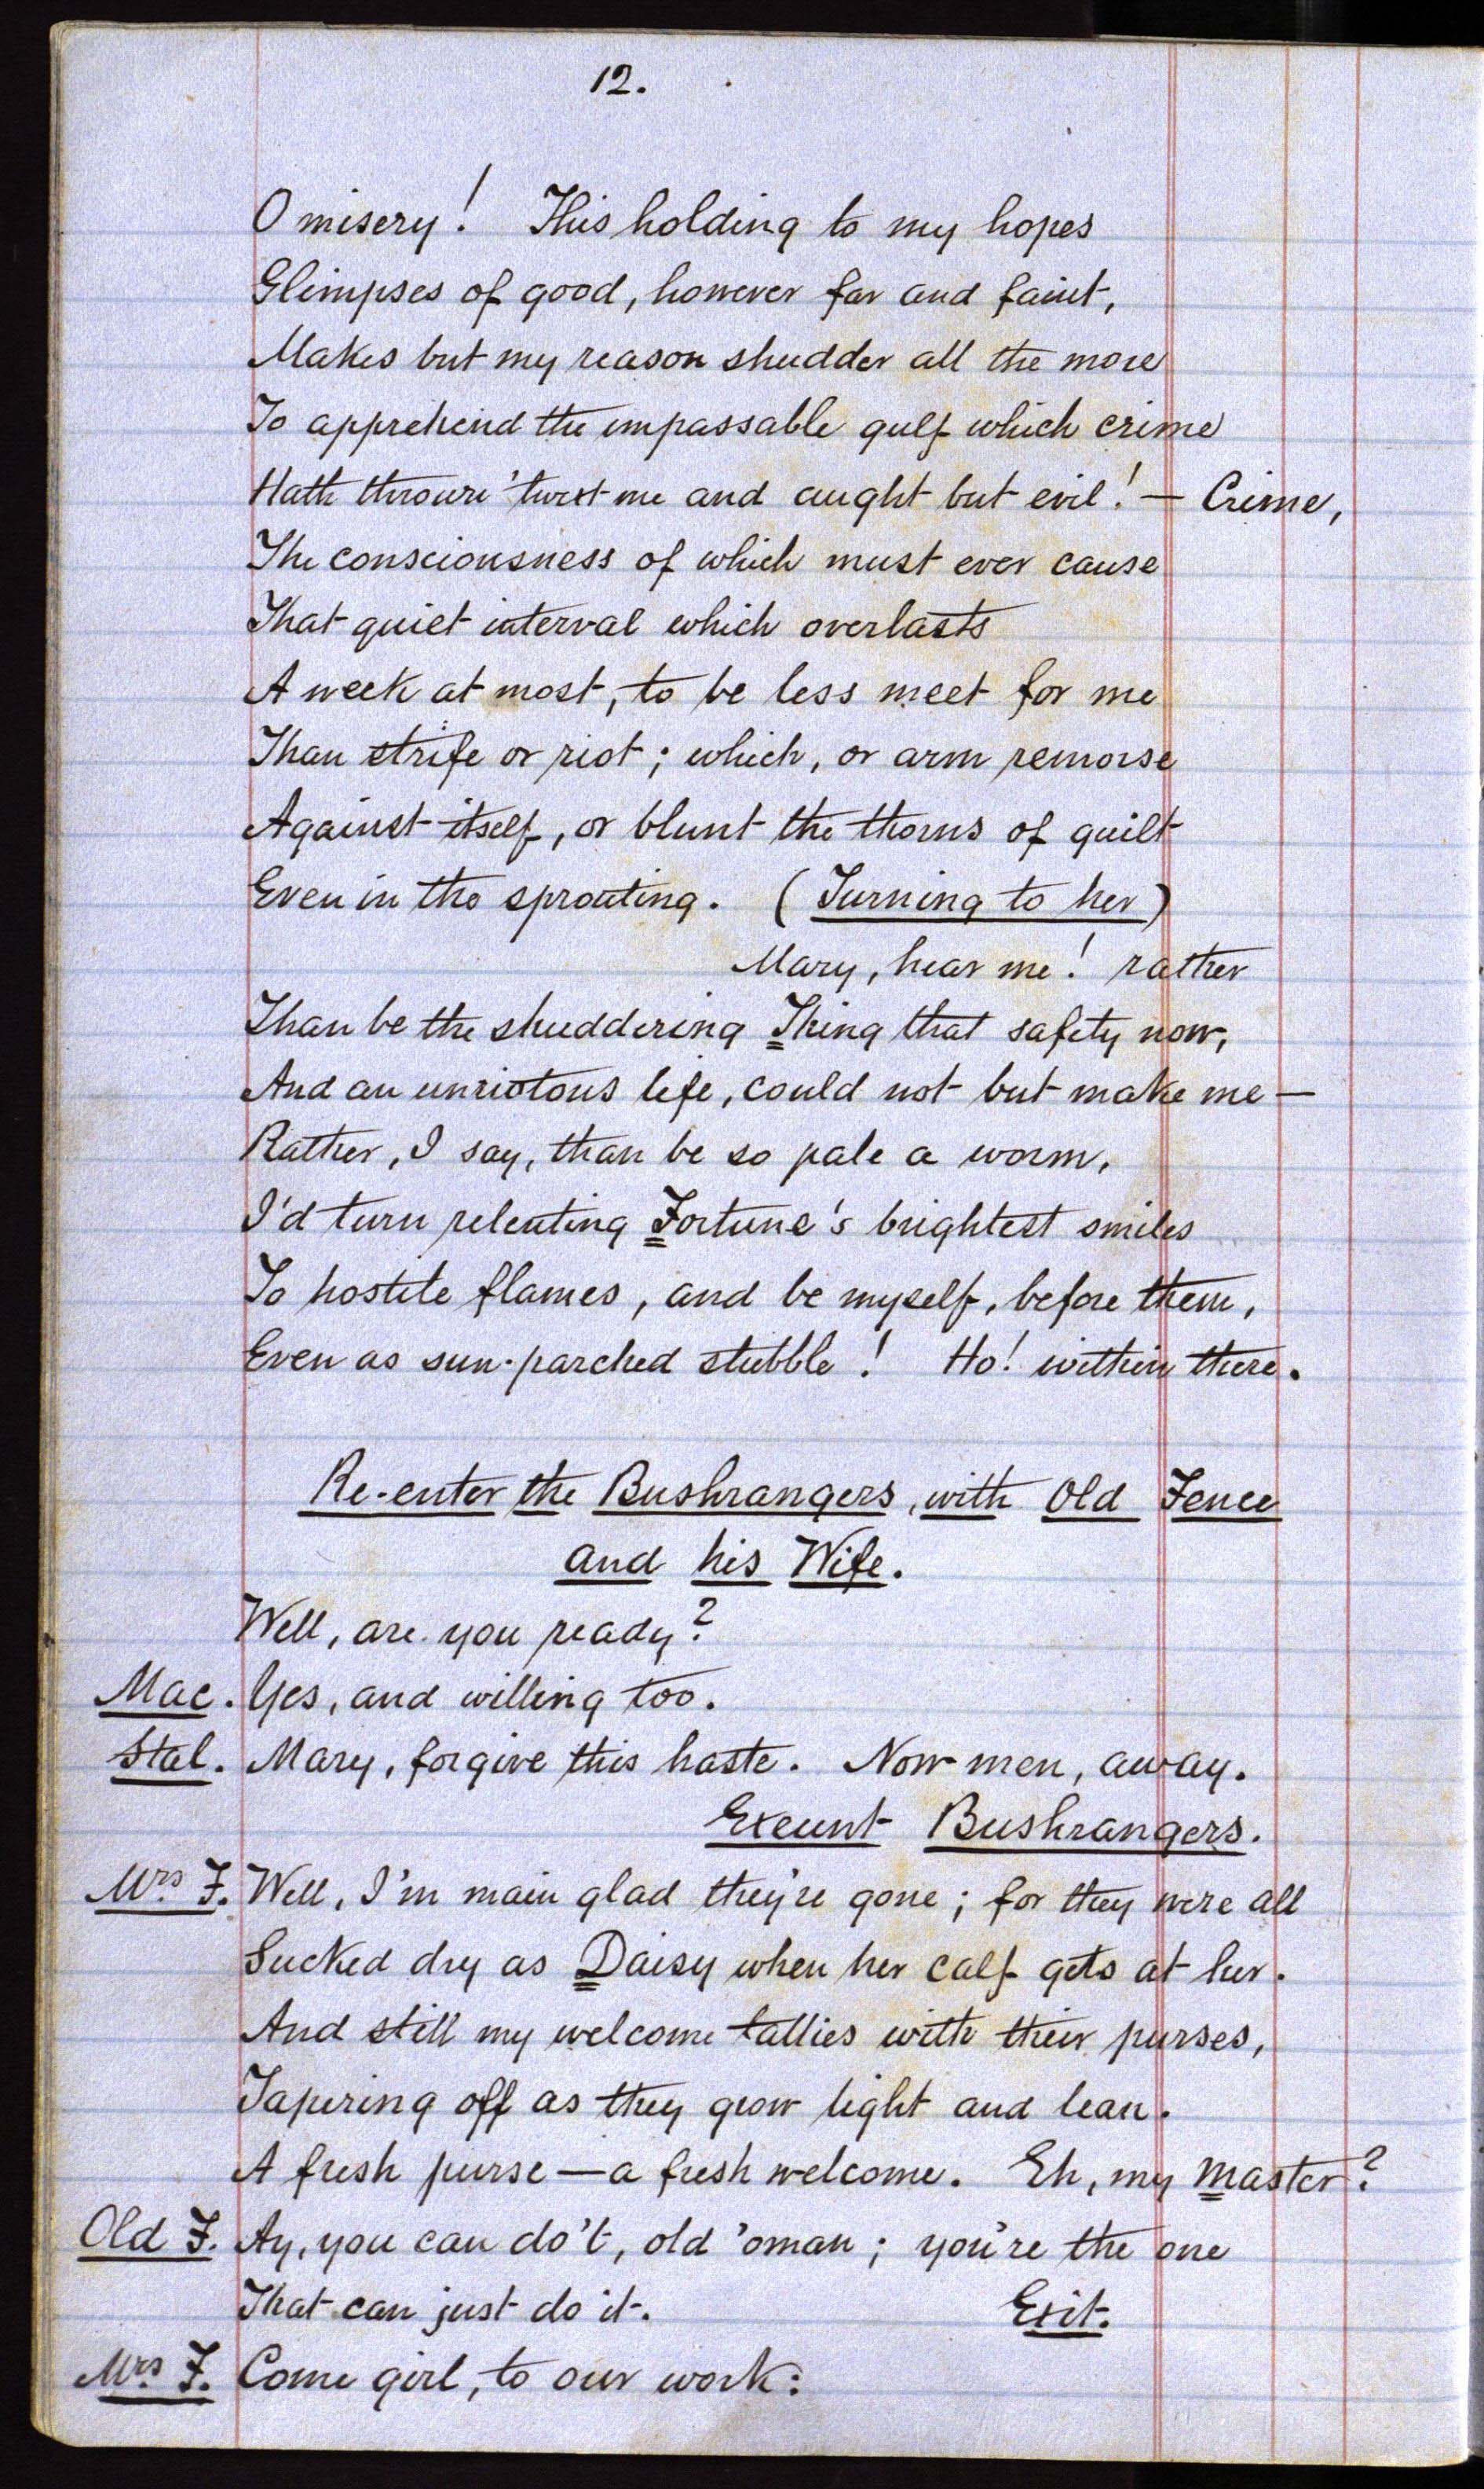 12.
O misery! This holding to my hopes
Glimpses of good, however far and faint,
Makes but my reason shudder all the more
To apprehend the impassable gulf which crime
Hath thrown 'twixt me and aught but evil! — Crime,
The consciousness of which must ever cause
That quiet interval which overlasts
A week at most, to be less meet for me
Than strife or riot; which, or arm remorse
Against itself, or blunt the thorns of guilt
Even in the sprouting. (Turning to her)
Mary, hear me! rather
Than be the shuddering Thing that safety now,
And an unriotous life, could not but make me —
Rather, I say, than be so pale a worm,
I'd turn relenting Fortune's brightest smiles
To hostile flames, and be myself, before them,
Even as sun-parched stubble! Ho! within there.
Re-enter the Bushrangers, with Old Fence
and his Wife.
Well, are you ready?
Mac. Yes, and willing too.
Stal. Mary, forgive this haste. Now men, away.
Exeunt Bushrangers.
Mrs F. Well, I'm main glad they're gone; for they were all
Sucked dry as Daisy when her calf gets at her.
And still my welcome tallies with their purses,
Tapering off as they grow light and lean.
A fresh purse — a fresh welcome. Eh, my master?
Old F. Ay, you can do't, old 'oman; you're the one
That can just do it. Exit.
Mrs F. Come girl, to our work: